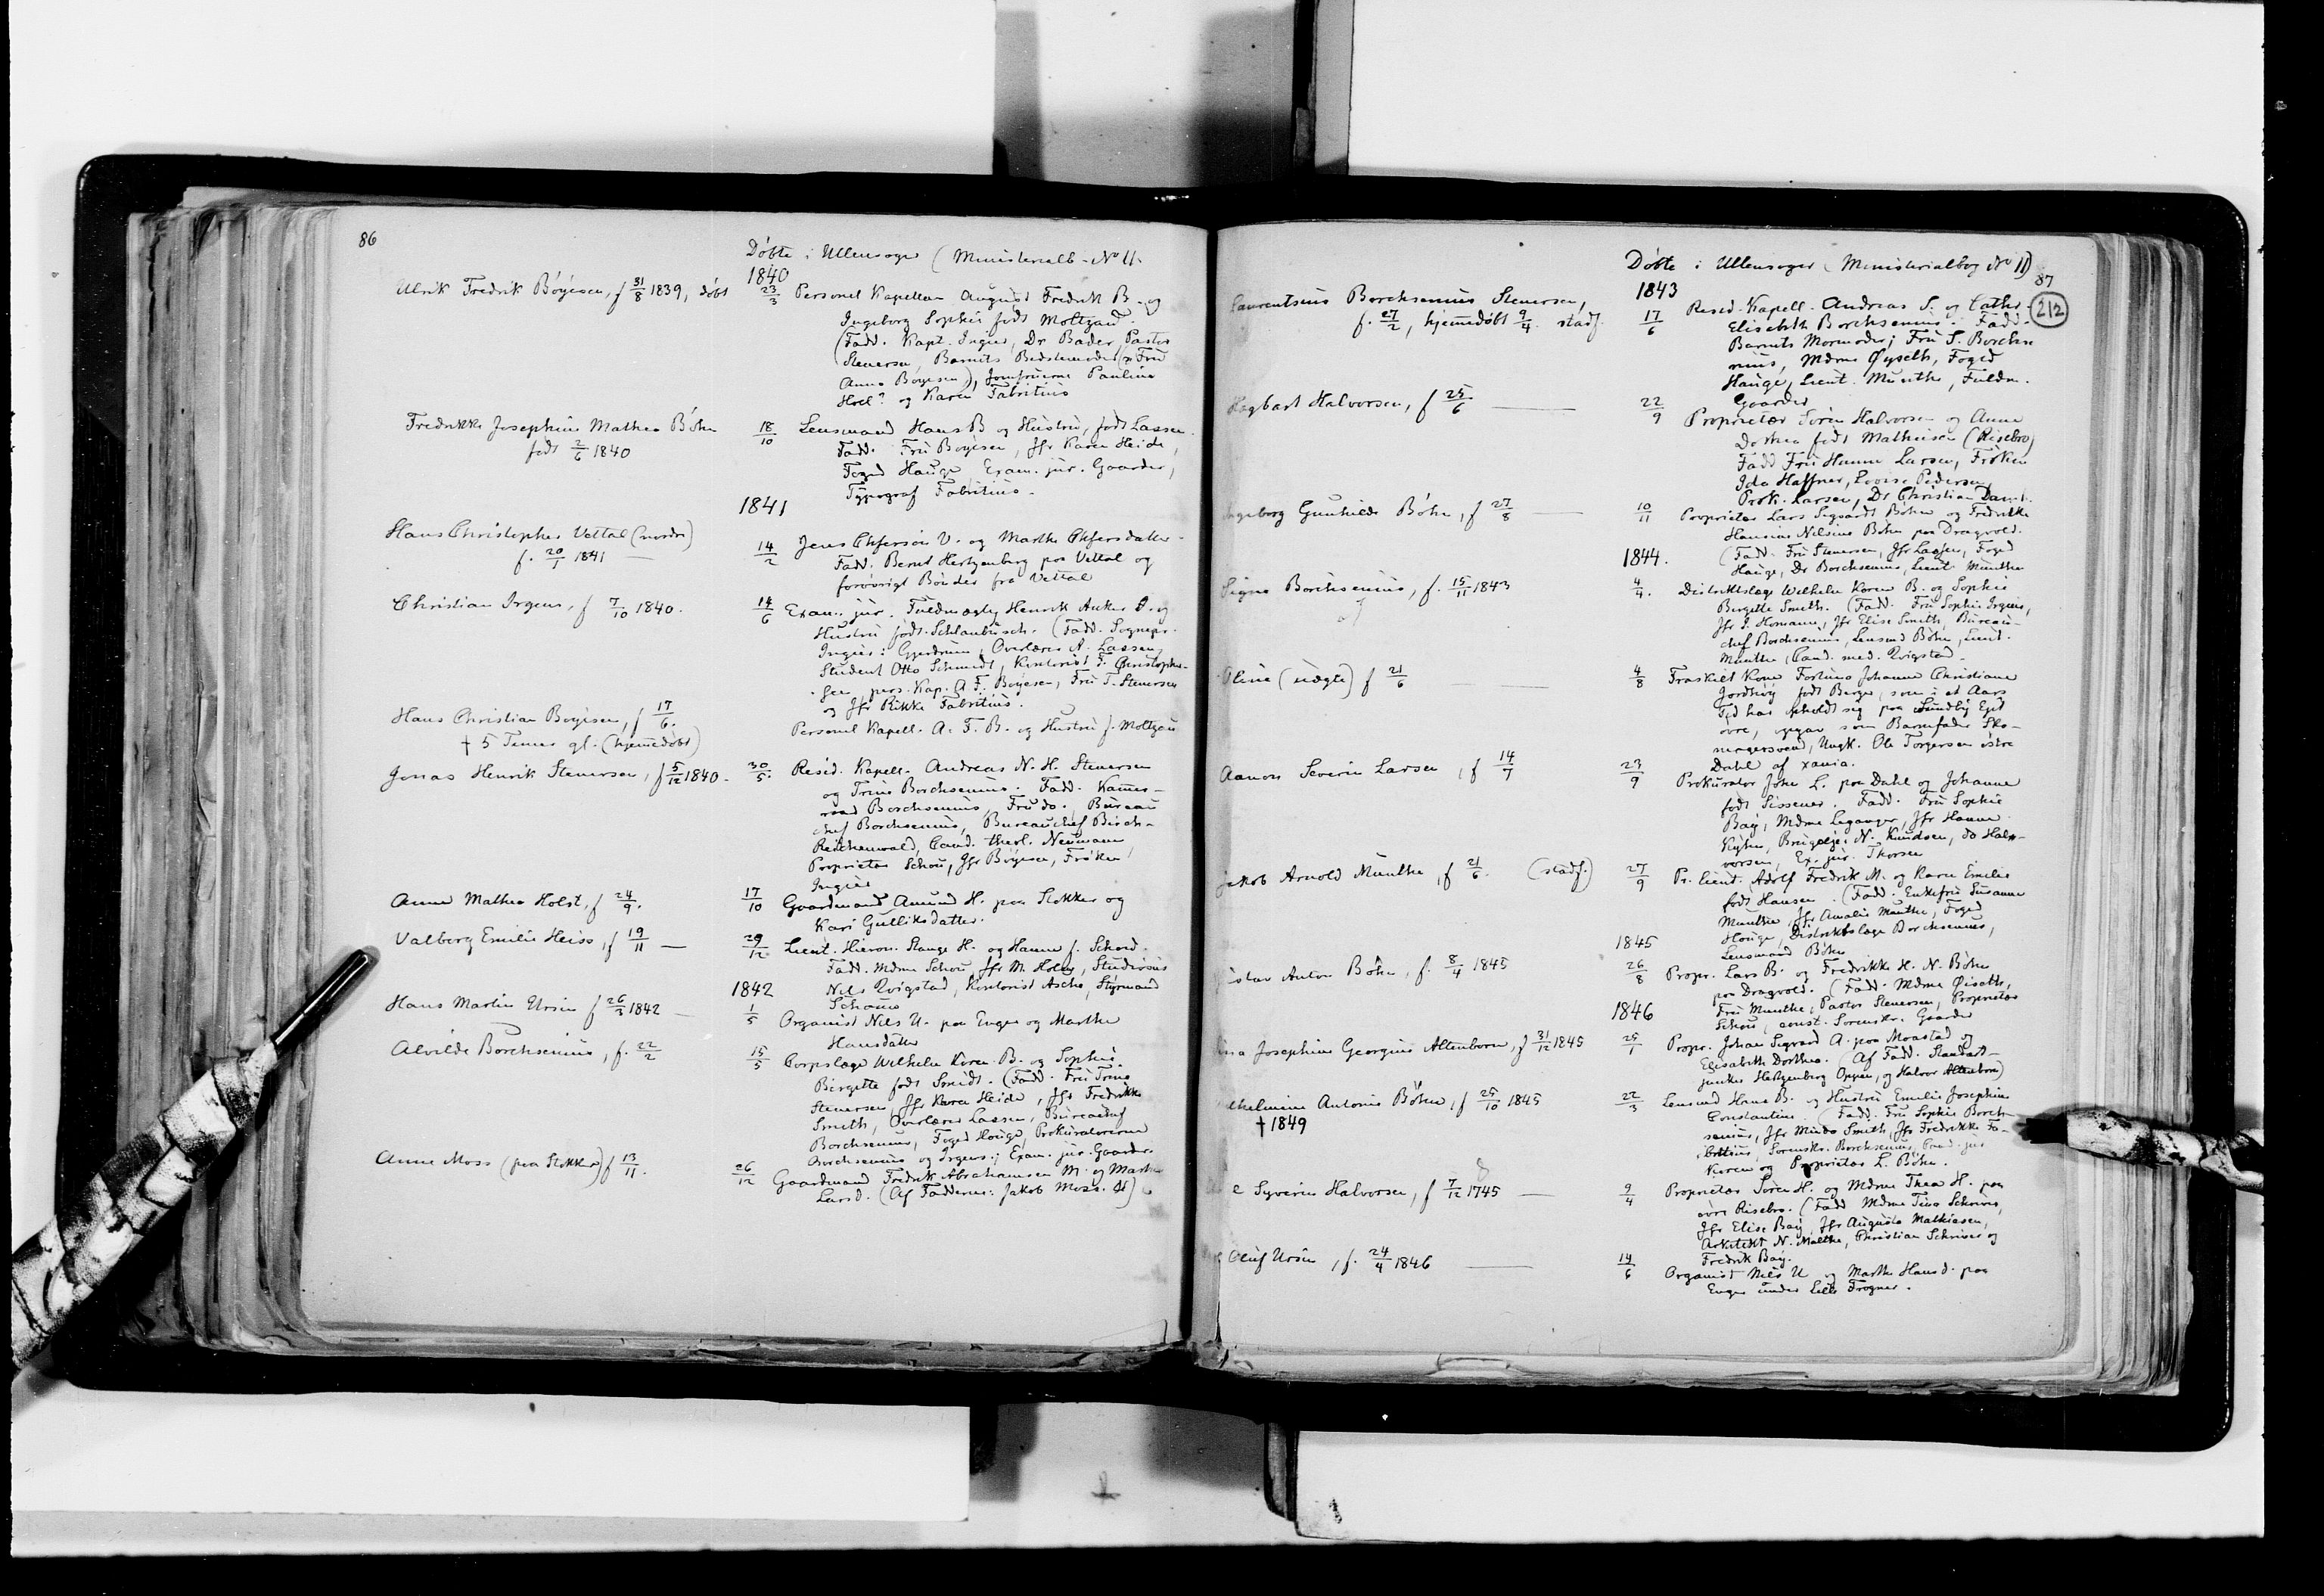 86
Døbte i Ullensager (Ministerialb. No 11.
1840
Ulrik Fredrik Böyesen, f 31/8 1839, døbt 23/3 Personel Kapellan August Fredrik B. og
Ingeborg Sophie født Moltzau.
(Fadd. Kapt. Ingier, Dr Bader, Pastor
Stenersen, Barnets Bedstemoder (Fru
Anna Boyesen), Jomfruerne Pauline
Hoel? og Karen Fabritius
Fredrikke Josephine Mathea Böhn 18/10 Lensmand Hans B og Hustru, født Lassen.
født 2/6 1840
Fadd. Fru Boyesen, Jfr Karen Heide,
Foged Hauge, Exam. jur. Gaarder,
Typograf Fabritius.
1841
Hans Christopher Vettal (nordre) 14/2 Jens Chfersen V. og Marthe Chfersdatter.
f. 20/1 1841 —
Fadd. Bernt Hertzenberg paa Vettal og
forøvrigt Bønder fra Vettal
Christian Irgens, f 7/10 1840. 14/6 Exam. jur. Fuldmægtig Henrik Anker I. og
Hustru født Schlanbusch. (Fadd. Sognepr.
Ingier i Gjerdrum, Overlærer A. Lassen,
Student Otto Schmidt, Kontorist F. Christopher-
sen, pers. Kap. A. F. Boyesen, Fru T. Stenersen
og Jfr Rikke Fabritius.
Hans Christian Boyesen, f 17/6. Personel Kapell. A. F. B. og Hustru f. Moltzau
† 5 Timer gl. (hjemmedøbt)
Jonas Henrik Stenersen, f 5/12 1840. 30/5. Resid. Kapell. Andreas N. H. Stenersen
og Trine Borchsenius. Fadd. Kamer-
raad Borchsenius, Fru do. Bureau
chef Borchsenius, Bureauchef Birch-
Reichenwald, Cand. theol. Neumann
Proprietær Schou, Jfr Böyesen, Frøken
Ingier
Anne Mathea Holst, f 24/9. 17/10 Gaardmand Amund H. paa Slokker og
Kari Gulliksdatter.
Valborg Emilie Heiss, f 19/11 — 29/12 Lieut. Hieron. Stange H. og Hanna f. Schord.
Fadd. Mdme Schou, Jfr M. Holm, Studiosus
1842 Nils Qvigstad, Kontorist Asche, Styrmand
Schouw
Hans Martin Ursin f 26/2 1842 — 1/5 Organist Nils U. paa Enger og Marthe
Hansdatter
Alvilde Borchsenius, f. 22/2 15/5 Corpslæge Wilhelm Koren B. og Sophie
Birgette født Smidt. (Fadd. Fru Trine
Stenersen, Jfr Karen Heide, Jfr Fredrikke
Smith, Overlærer Lassen, Bureauchef
Borchsenius, Foged Hauge, Prokuratorerne
Borchsenius og Irgens; Exam. jur. Gaarder
Anne Moss (paa Slokker) f 13/11. 26/12 Gaardmand Fredrik Abrahamsen M. og Marthe
Larsd. (Af Fadderne: Jakob Moss.)
Døbte i Ullensager (Ministerialbog No 11)
87
212
1843
Laurentsius Borchsenius Stenersen, 17/6 Resid. Kapell. Andreas S. og Cathr.
f. 27/2, hjemmedøbt 9/4. stadf.
Elisabeth Borchsenius. Fadd.
Barnets Mormoder; Fru S. Borchse
nius, Mdme Øyseth, Foged
Hauge, Lieut. Munthe, Fuldm.
Gaarder
Hagbart Halvorsen, f 25/6 — 22/9 Proprietær Søren Halvorsen og Anne
Dorthea født Mathiesen (Risebro)
Fadd Fru Hanna Larsen, Frøken
Ida Haffner, Lovise Pedersen,
Prok. Larsen, Dr Christian
Ingeborg Gunhilde Böhn, f 27/8 — 10/11 Proprietær Lars Sigvardt Böhn og Fredrikke
Hansine Nilsine Böhn paa Dragvold.
(Fadd. Fru Stenersen, Jfr Lassen, Foged
1844. Hauge, Dr Borchsenius, Lieut Munthe
Signe Borchsenius, f. 15/11 1843 4/4. Distriktslæge Wilhelm Koren B. og Sophie
Birgette Smith. (Fadd. Fru Sophie Irgens,
Jfr J. Homann, Jfr Elise Smith, Bureau-
chef Borchsenius, Lensmd Böhn, Lieut.
Munthe, Cand. med. Qvigstad.
Oline (uægte) f 21/6 — 4/8 Fraskilt Kone Fortuna Johanne Christiane
Jordhøy født Berger, som i et Aars
Tid har opholdt sig paa Sundby Ejd
øvre, opgav som Barnefader Sko-
magersvend, Ungk. Ole Torgersen østre
Dahl af Xania.
Aanon Severin Larsen, f 14/7 23/9 Prokurator John L. paa Dahl og Johanne
født Sissener. Fadd. Fru Sophie
Bay, Mdme Leganger, Jfr Hanne
Kyhn, Brugseje N. Knudsen, do Halv-
vorsen, Ex. jur. Thorsen
Jakob Arnold Munthe, f 21/6. (stadf.) 27/9 Pr. Lieut. Adolf Fredrik M. og Karen Emilie
født Hansen. (Fadd. Enkefru Susanne
Munthe, Jfr Amalie Munthe, Foged
1845 Hauge, Distriktslæge Borchsenius,
Lensmand Böhn
Gustav Anton Böhn, f. 8/4 1845 26/8 Propr. Lars B. og Fredrikke H. N. Böhn
paa Dragvold. (Fadd. Mdme Øiseth,
1846 Fru Munthe, Pastor Stenersen, Proprietær
Schou, const. Sorenskr. Gaarder
Josephine Georgine Altenborn, f 31/12 1845 25/1 Propr. Johan Sigvard A. paa Moastad og
Elisabeth Dorthea. (Af Fadd. Standart-
junker Hertzenberg Oppen, og Halvor Altenborn)
Wilhelmine Antonie Böhn, f 25/10 1845 22/3 Lensmd Hans B. og Hustru Emilie Josephine
† 1849
Constantine. (Fadd. Fru Sophie Borch
senius, Jfr Minda Smith, Jfr Fredrikke Fa-
britius, Sorenskr. Borchsenius, Cand. jur
Koren og Proprietær L. Böhn.
e Syverin Halvorsen, f 7/12 1745 — 9/4 Proprietær Søren H. og Mdme Thea H. paa
øvre Risebro. (Fadd Mdme Tina Schriver,
Jfr Elise Bay, Jfr Augusta Mathiesen,
Arkitekt N. Malthe, Christian Schriver og
Fredrik Bay.
Oluf Ursin, f. 24/4 1846 — 14/6 Organist Nils U og Marthe Hansd. paa
Enger under Lille Frogner.